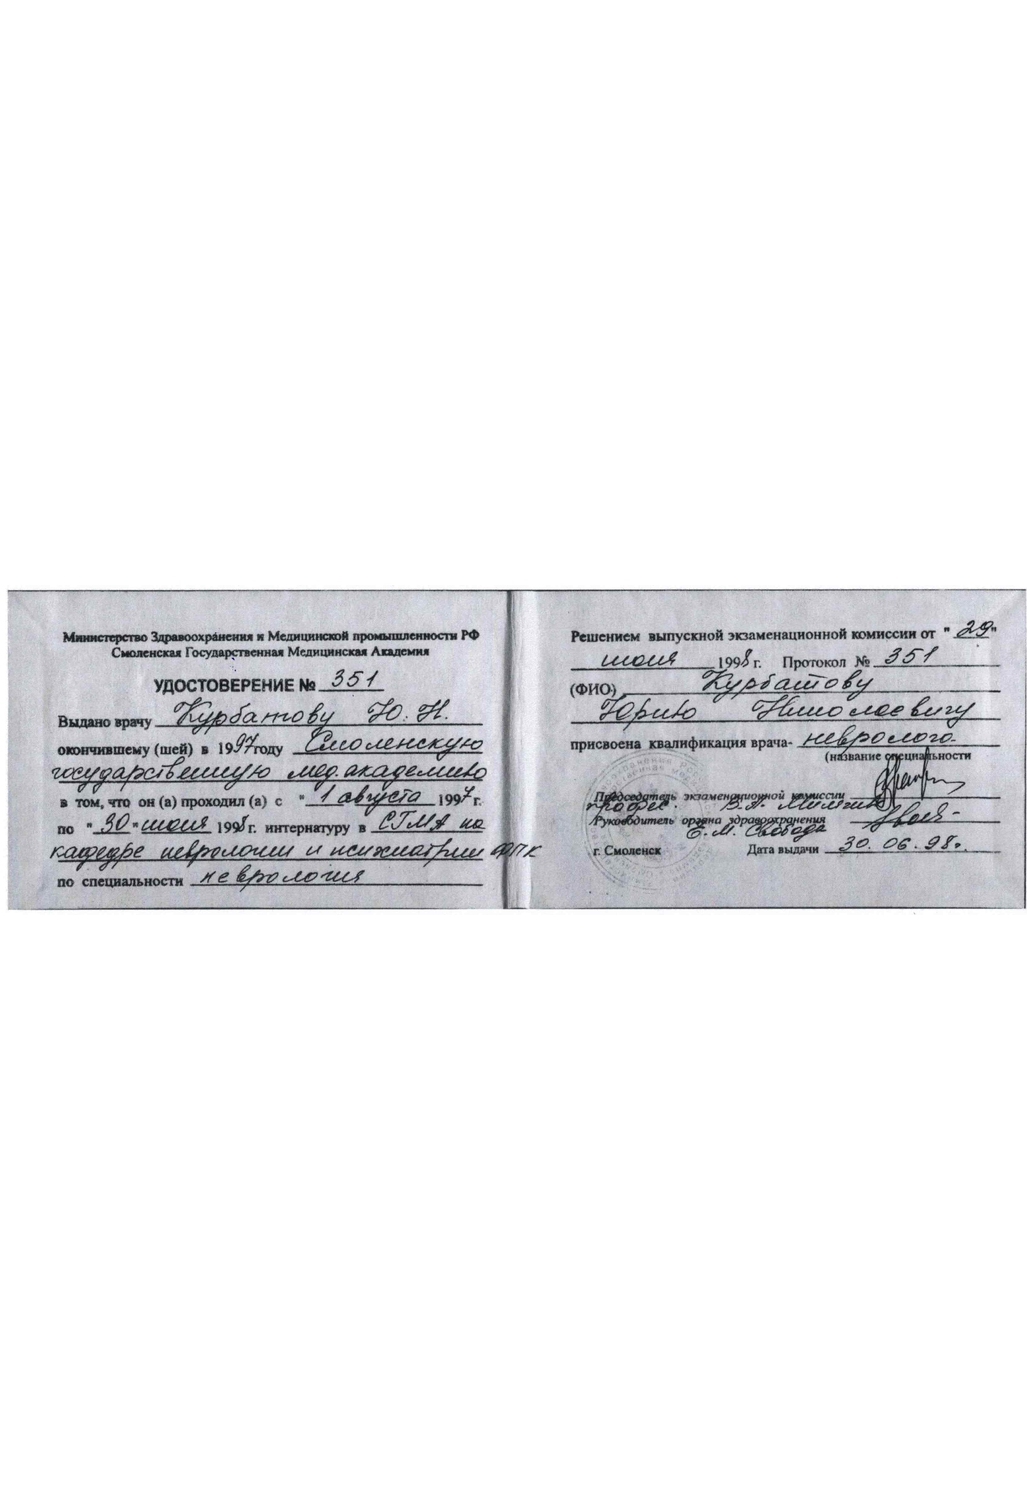 Министерство Здравоохранения и Медицинской промышленности РФ
Смоленская Государственная Медицинская Академия
УДОСТОВЕРЕНИЕ № 351
Выдано врачу Курбатову Ю. Н.
окончившему (шей) в 1997 году Смоленскую
государственную мед. академию
в том, что он (а) проходил (а) с "1 августа 1997 г.
по "30" июня 1998 г. интернатуру в СГМА на
кафедре неврологии и психиатрии ФПК
по специальности неврология
Решением выпускной экзаменационной комиссии от "29"
июня 1998 г. Протокол № 351
(ФИО) Курбатову
Юрию Николаевичу
присвоена квалификация врача- невролога
(название специальности
Председатель экзаменационной комиссии
профес. В.А.
Руководитель органа здравоохранения
Е.М. Свобода
г. Смоленск Дата выдачи 30. 06. 98.